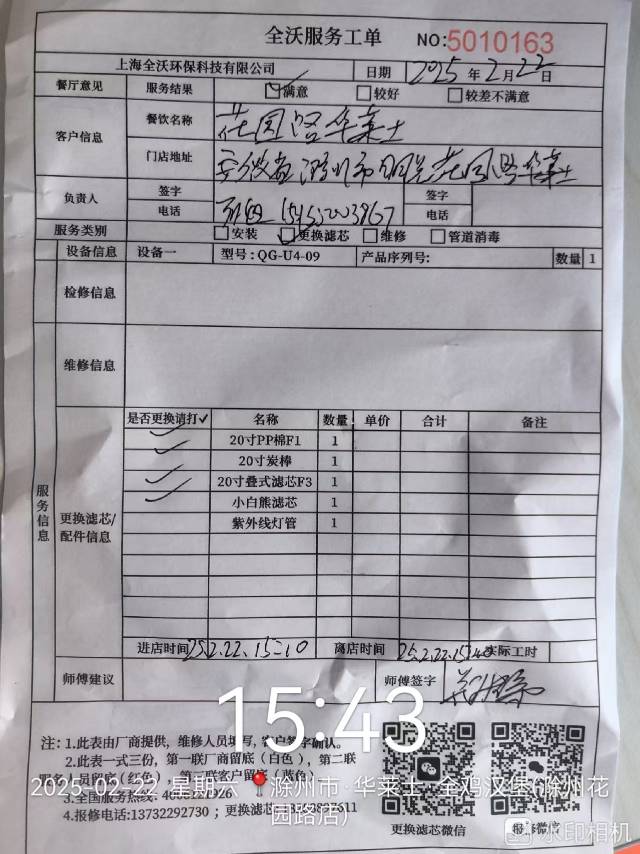 全沃服务工单 NO:5010163
上海全沃环保科技有限公司 日期 2025年2月22日
餐厅意见 服务结果 满意 较好 较差不满意
客户信息 餐饮名称 花园路华莱士
门店地址 安徽省滁州市明光花园路华莱士
负责人 签字 签字
电话 电话
服务类别 安装 更换滤芯 维修 管道消毒
设备信息 设备一 型号:QG-U4-09 产品序列号: 数量 1
检修信息
维修信息
服务信息
更换滤芯/配件信息
是否更换请打✓ 名称 数量 单价 合计 备注
✓ 20寸PP棉F1 1
✓ 20寸炭棒 1
✓ 20寸叠式滤芯F3 1
✓ 小白熊滤芯 1
紫外线灯管 1
进店时间 25.2.22.15:10 离店时间 25.2.22.15:40 实际工时
师傅建议 师傅签字
15:43
注:1.此表由厂商提供,维修人员填写,客户签字确认。
2.此表一式三份,第一联厂商留底(白色),第二联
服务人员留底(红色),第三联客户留底(蓝色)
2025-02-22 星期六 滁州市·华莱士·全鸡汉堡(滁州花
园路店)
3.全国服务热线:
4.报修电话:13732292730;更换滤芯:
更换滤芯微信 报修微信
水印相机